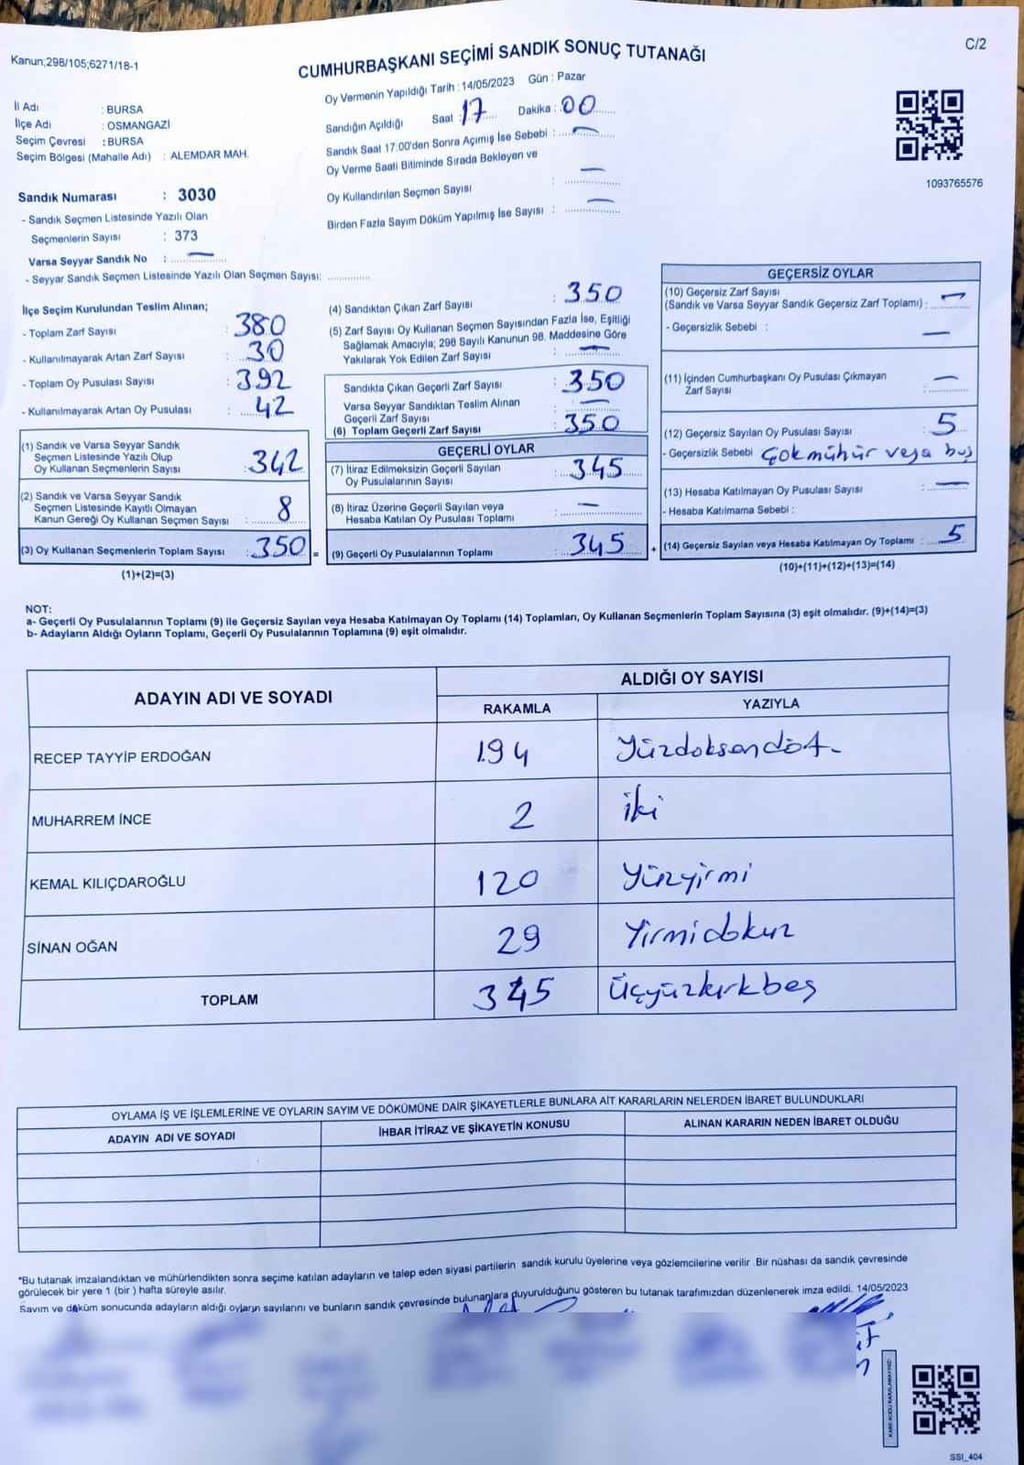 Kanun;298/105;6271/18-1
C/2
CUMHURBAŞKANI SEÇİMİ SANDIK SONUÇ TUTANAĞI
İl Adı : BURSA
İlçe Adı : OSMANGAZİ
Seçim Çevresi : BURSA
Seçim Bölgesi (Mahalle Adı) : ALEMDAR MAH.
Sandık Numarası : 3030
- Sandık Seçmen Listesinde Yazılı Olan
Seçmenlerin Sayısı : 373
Varsa Seyyar Sandık No : —
- Seyyar Sandık Seçmen Listesinde Yazılı Olan Seçmen Sayısı: ............
Oy Vermenin Yapıldığı Tarih : 14/05/2023 Gün : Pazar
Sandığın Açıldığı Saat : 17 Dakika : 00
Sandık Saat 17.00'den Sonra Açımış İse Sebebi : —
Oy Verme Saati Bitiminde Sırada Bekleyen ve
Oy Kullandırılan Seçmen Sayısı : —
Birden Fazla Sayım Döküm Yapılmış İse Sayısı : —
1093765576
İlçe Seçim Kurulundan Teslim Alınan;
- Toplam Zarf Sayısı : 380
- Kullanılmayarak Artan Zarf Sayısı : 30
- Toplam Oy Pusulası Sayısı : 392
- Kullanılmayarak Artan Oy Pusulası : 42
(1) Sandık ve Varsa Seyyar Sandık
Seçmen Listesinde Yazılı Olup
Oy Kullanan Seçmenlerin Sayısı : 342
(2) Sandık ve Varsa Seyyar Sandık
Seçmen Listesinde Kayıtlı Olmayan
Kanun Gereği Oy Kullanan Seçmen Sayısı : 8
(3) Oy Kullanan Seçmenlerin Toplam Sayısı : 350 =
(1)+(2)=(3)
(4) Sandıktan Çıkan Zarf Sayısı : 350
(5) Zarf Sayısı Oy Kullanan Seçmen Sayısından Fazla İse, Eşitliği
Sağlamak Amacıyla; 298 Sayılı Kanunun 98. Maddesine Göre
Yakılarak Yok Edilen Zarf Sayısı : —
Sandıkta Çıkan Geçerli Zarf Sayısı : 350
Varsa Seyyar Sandıktan Teslim Alınan
Geçerli Zarf Sayısı : —
(6) Toplam Geçerli Zarf Sayısı : 350
GEÇERLİ OYLAR
(7) İtiraz Edilmeksizin Geçerli Sayılan
Oy Pusulalarının Sayısı : 345
(8) İtiraz Üzerine Geçerli Sayılan veya
Hesaba Katılan Oy Pusulası Toplamı : —
(9) Geçerli Oy Pusulalarının Toplamı : 345 +
GEÇERSİZ OYLAR
(10) Geçersiz Zarf Sayısı
(Sandık ve Varsa Seyyar Sandık Geçersiz Zarf Toplamı) : —
- Geçersizlik Sebebi : —
(11) İçinden Cumhurbaşkanı Oy Pusulası Çıkmayan
Zarf Sayısı : —
(12) Geçersiz Sayılan Oy Pusulası Sayısı : 5
- Geçersizlik Sebebi : Çokmühür veya boş
(13) Hesaba Katılmayan Oy Pusulası Sayısı : —
- Hesaba Katılmama Sebebi :
(14) Geçersiz Sayılan veya Hesaba Katılmayan Oy Toplamı : 5
(10)+(11)+(12)+(13)=(14)
NOT:
a- Geçerli Oy Pusulalarının Toplamı (9) ile Geçersiz Sayılan veya Hesaba Katılmayan Oy Toplamı (14) Toplamları, Oy Kullanan Seçmenlerin Toplam Sayısına (3) eşit olmalıdır. (9)+(14)=(3)
b- Adayların Aldığı Oyların Toplamı, Geçerli Oy Pusulalarının Toplamına (9) eşit olmalıdır.
ADAYIN ADI VE SOYADI
ALDIĞI OY SAYISI
RAKAMLA YAZIYLA
RECEP TAYYİP ERDOĞAN 194 Yüzdoksandört
MUHARREM İNCE 2 iki
KEMAL KILIÇDAROĞLU 120 Yüzyirmi
SİNAN OĞAN 29 Yirmidokuz
TOPLAM 345 Üçyüzkırkbeş
OYLAMA İŞ VE İŞLEMLERİNE VE OYLARIN SAYIM VE DÖKÜMÜNE DAİR ŞİKAYETLERLE BUNLARA AİT KARARLARIN NELERDEN İBARET BULUNDUKLARI
ADAYIN ADI VE SOYADI İHBAR İTİRAZ VE ŞİKAYETİN KONUSU ALINAN KARARIN NEDEN İBARET OLDUĞU
*Bu tutanak imzalandıktan ve mühürlendikten sonra seçime katılan adayların ve talep eden siyasi partilerin sandık kurulu üyelerine veya gözlemcilerine verilir. Bir nüshası da sandık çevresinde
görülecek bir yere 1 (bir ) hafta süreyle asılır.
Sayım ve döküm sonucunda adayların aldığı oyların sayılarını ve bunların sandık çevresinde bulunanlara duyurulduğunu gösteren bu tutanak tarafımızdan düzenlenerek imza edildi. 14/05/2023
SSI_404